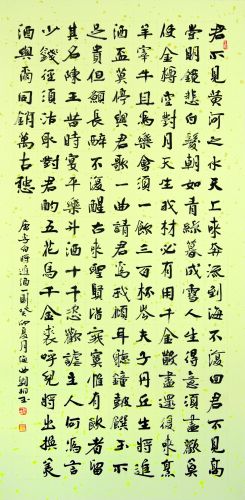 君不見黃河之水天上來奔流到海不復回君不見高
堂明鏡悲白髮朝如青絲暮成雪人生得意須盡歡莫
使金樽空對月天生我材必有用千金散盡還復來烹
羊宰牛且為樂會須一飲三百杯岑夫子丹丘生將進
酒盃莫停與君歌一曲請君為我傾耳聽鐘鼓饌玉不
足貴但願長醉不復醒古來聖賢皆寂寞惟有飲者留
其名陳王昔時宴平樂斗酒十千恣歡謔主人何為言
少錢徑須沽取對君酌五花馬千金裘呼兒將出換美
酒與爾同銷萬古愁
唐李白將進酒一首癸卯夏月